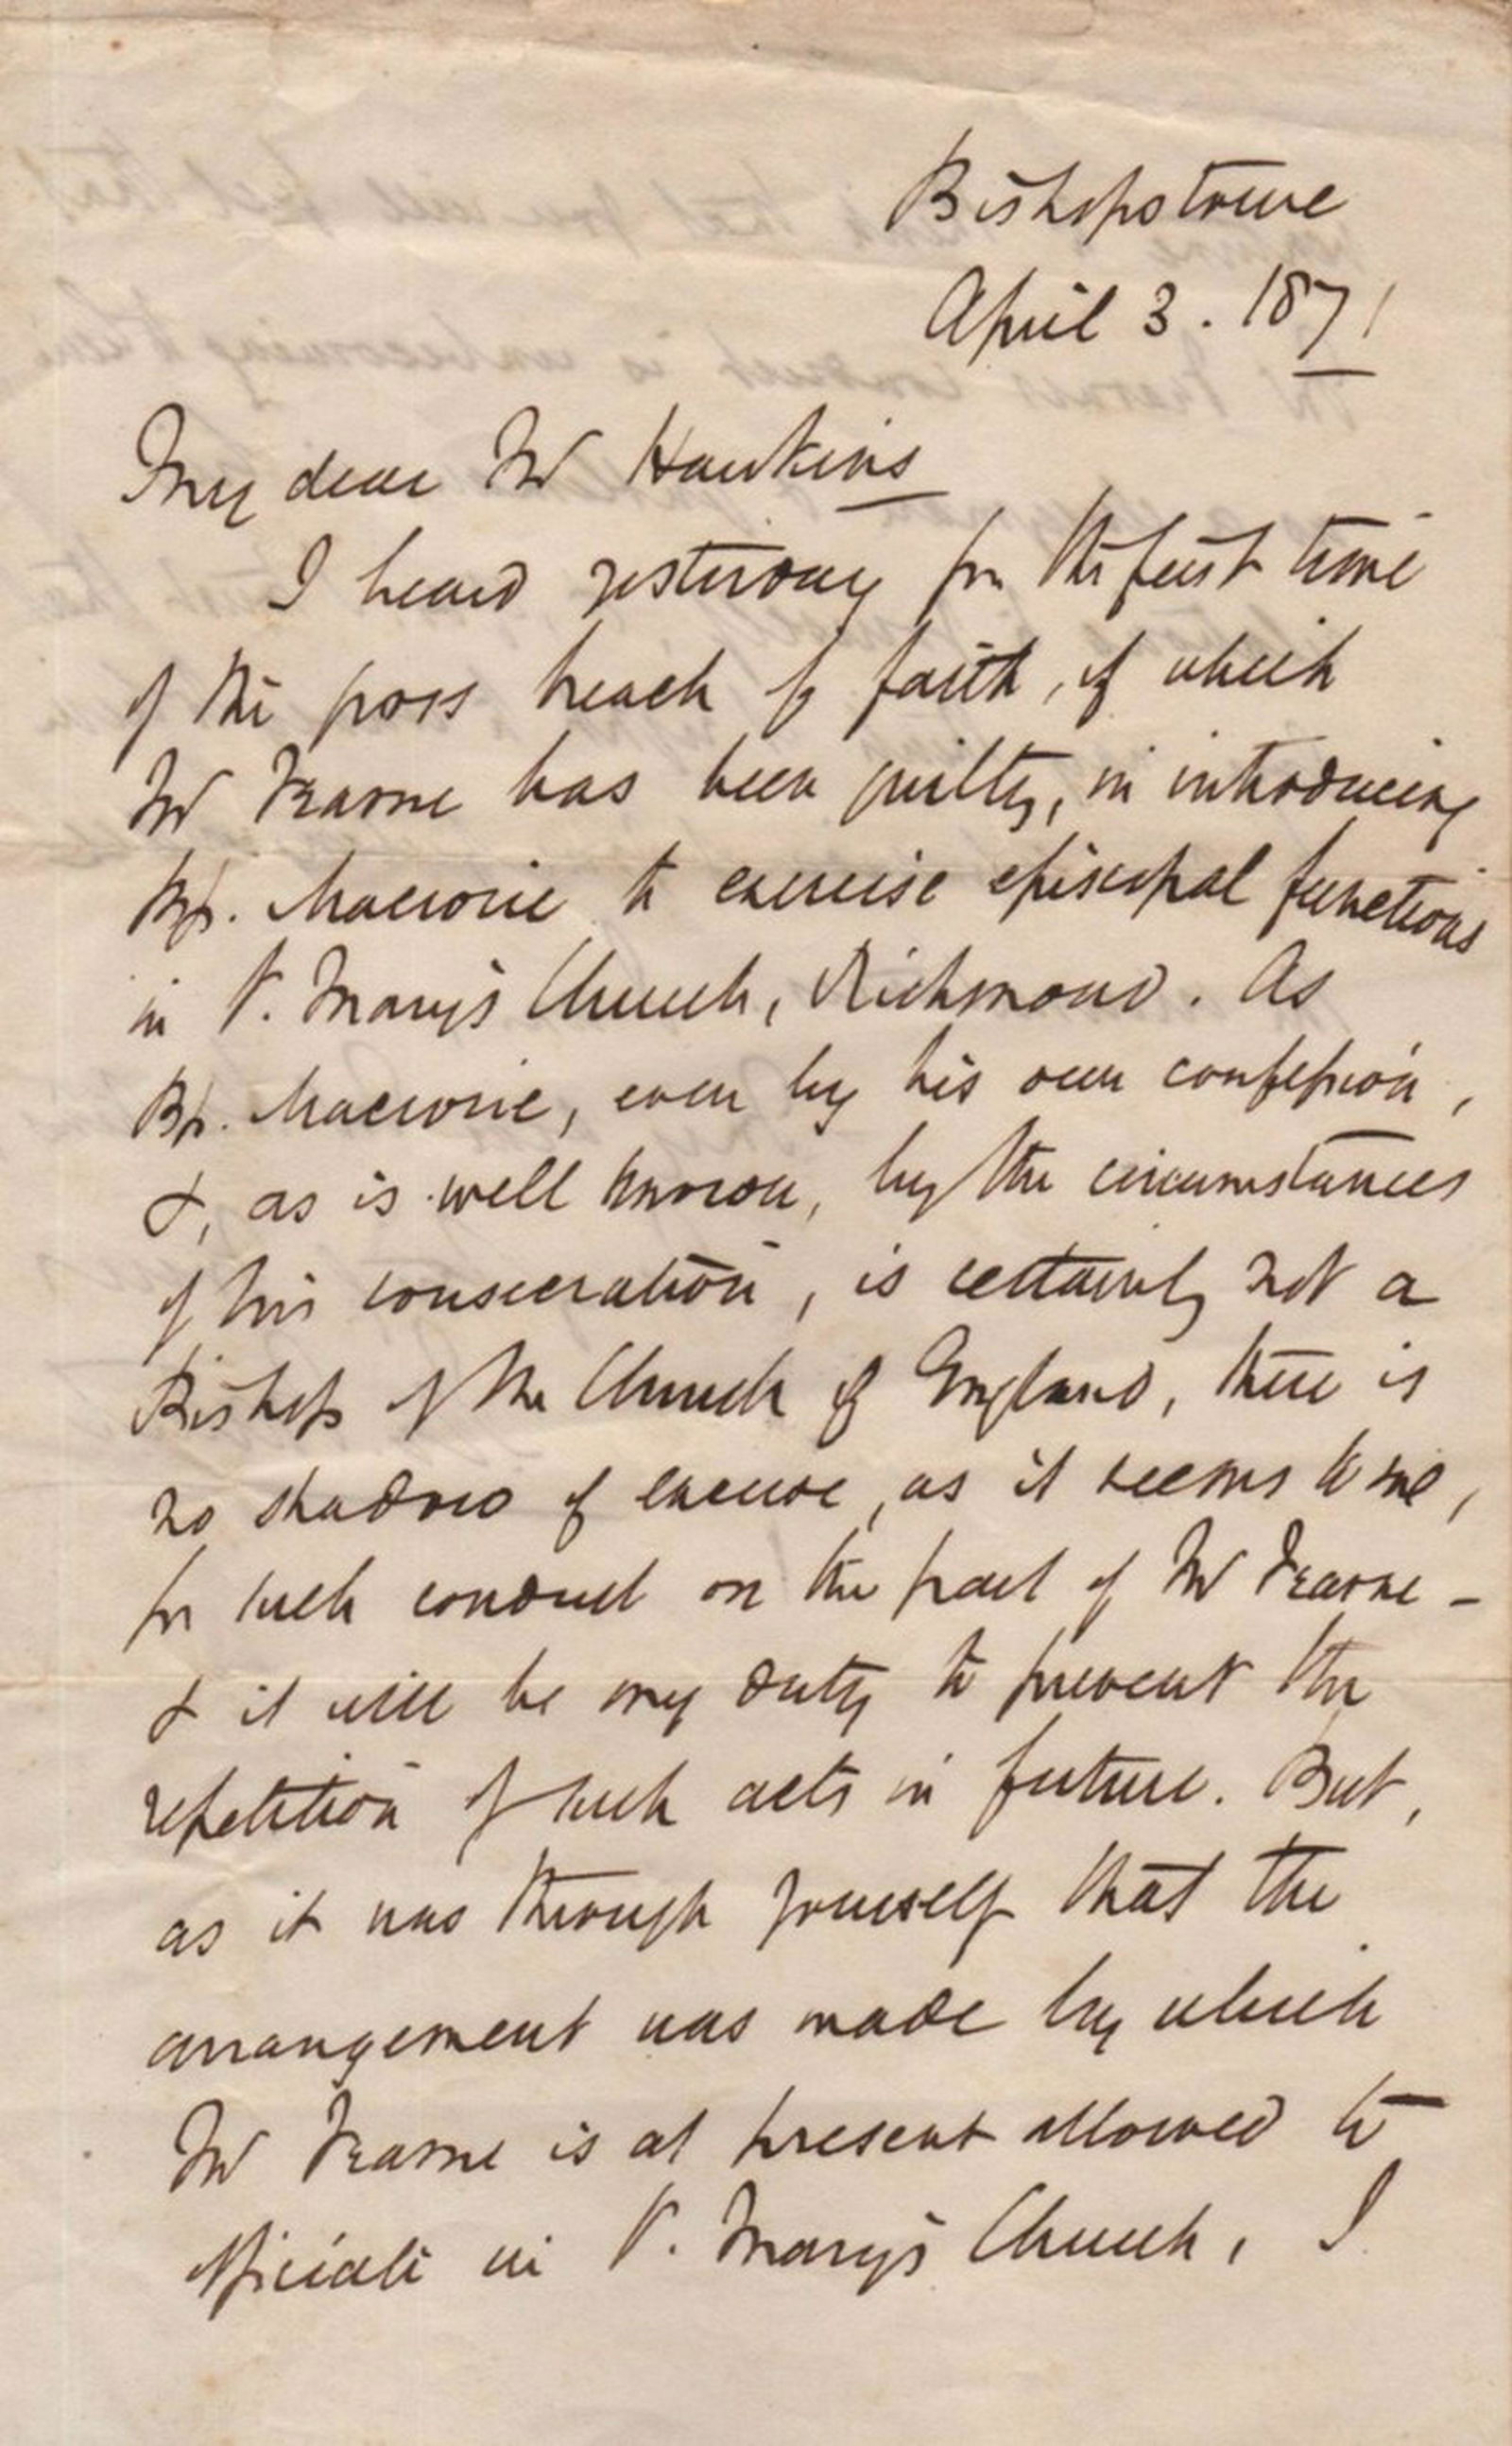 Bishopstowe
April 3. 1871
My dear Mr Hawkins
I heard yesterday for the first time
of the gross breach of faith, of which
Mr Fearne has been guilty, in introducing
Bp. Macrorie to exercise episcopal functions
in St. Mary's Church, Richmond. As
Bp. Macrorie, even by his own confession,
&, as is well known, by the circumstances
of his consecration, is certainly not a
Bishop of the Church of England, there is
no shadow of excuse, as it seems to me,
for such conduct on the part of Mr Fearne –
& it will be my duty to prevent the
repetition of such acts in future. But,
as it was through yourself that the
arrangement was made by which
Mr Fearne is at present allowed to
officiate in St. Mary's Church, I